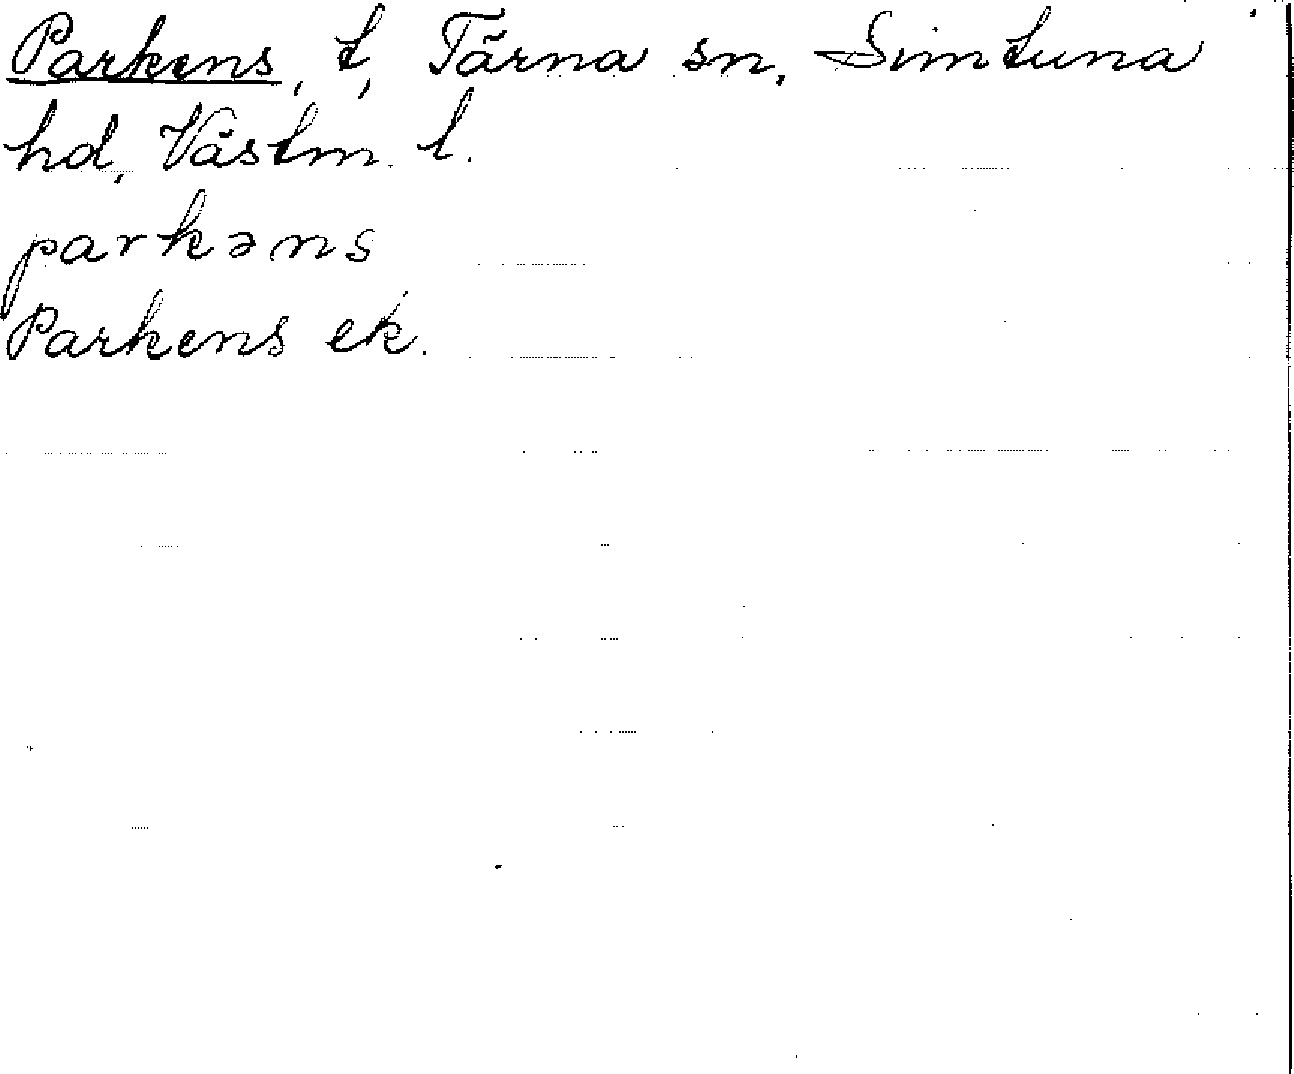 Parkens, t, Tärna sn, Simtuna
hd, Västm. l.
parkəns
Parkens ek.